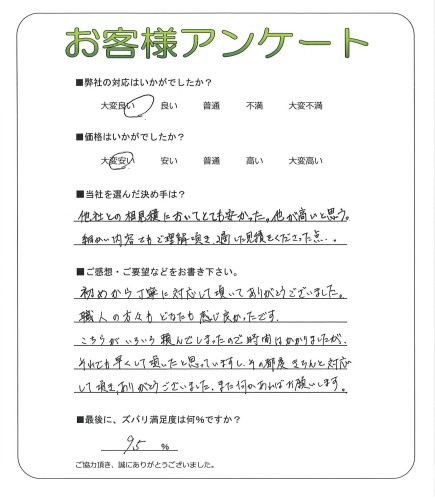 お客様アンケート
■弊社の対応はいかがでしたか？
大変良い 良い 普通 不満 大変不満
■価格はいかがでしたか？
大変安い 安い 普通 高い 大変高い
■当社を選んだ決め手は？
他社との相見積においてとても安かった。他が高いと思う。
細かい内容でもご理解頂き 適した見積をくださった点。
■ご感想・ご要望などをお書き下さい。
初めから丁寧に対応して頂いてありがとうございました。
職人の方々も どなたも感じ良かったです。
こちらがいろいろ頼んでしまったので時間はかかりましたが、
それでも早くして頂いたと思っていますし、その都度きちんと対応
して頂き、ありがとうございました。また何かあればお願いします。
■最後に、ズバリ満足度は何％ですか？
95 ％
ご協力頂き、誠にありがとうございました。